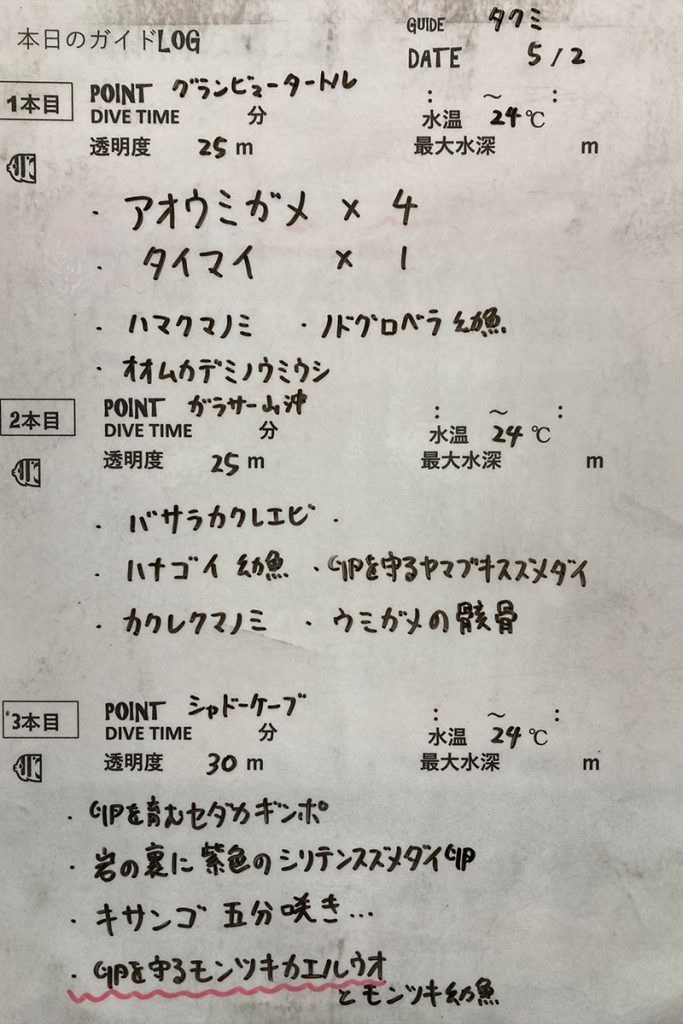 本日のガイドLOG
GUIDE タクミ
DATE 5/2
1本目 POINT グランビュータートル
DIVE TIME 分 : ～ :
水温 24℃
透明度 25 m 最大水深 m
・アオウミガメ × 4
・タイマイ × 1
・ハマクマノミ ・ノドグロベラ 幼魚
・オオムカデミノウミウシ
2本目 POINT ガラサー山沖
DIVE TIME 分 : ～ :
水温 24℃
透明度 25 m 最大水深 m
・バサラカクレエビ ・
・ハナゴイ 幼魚 ・卵を守るヤマブキスズメダイ
・カクレクマノミ ・ウミガメの骸骨
3本目 POINT シャドーケーブ
DIVE TIME 分 : ～ :
水温 24℃
透明度 30 m 最大水深 m
・卵を育むセダカギンポ
・岩の裏に紫色のシリテンスズメダイ卵
・キサンゴ 五分咲き…
・卵を守るモンツキカエルウオ
とモンツキ幼魚